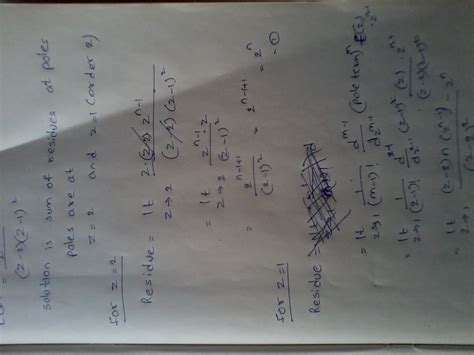 (z-2)(z-1)²
solution is sum of residues at poles
poles are at
z=2 and z=1 (order 2)
for z=2
Residue = lt z→2 z·(z-2) z^(n-1) / (z-2)(z-1)²
= lt z→2 z^(n-1)·z / (z-1)²
= 2^(n-1+1) / (2-1)² = 2^(n-1+1) = 2^n —①
for z=1
Residue =
= lt z→1 1/(m-1)! d^(m-1)/dz^(m-1) (pole term)^m f(z)·z^(n-1)
= lt z→1 1/(2-1)! d^(2-1)/dz^(2-1) (z-1)² (z)·z^(n-1) / (z-2)(z-1)²